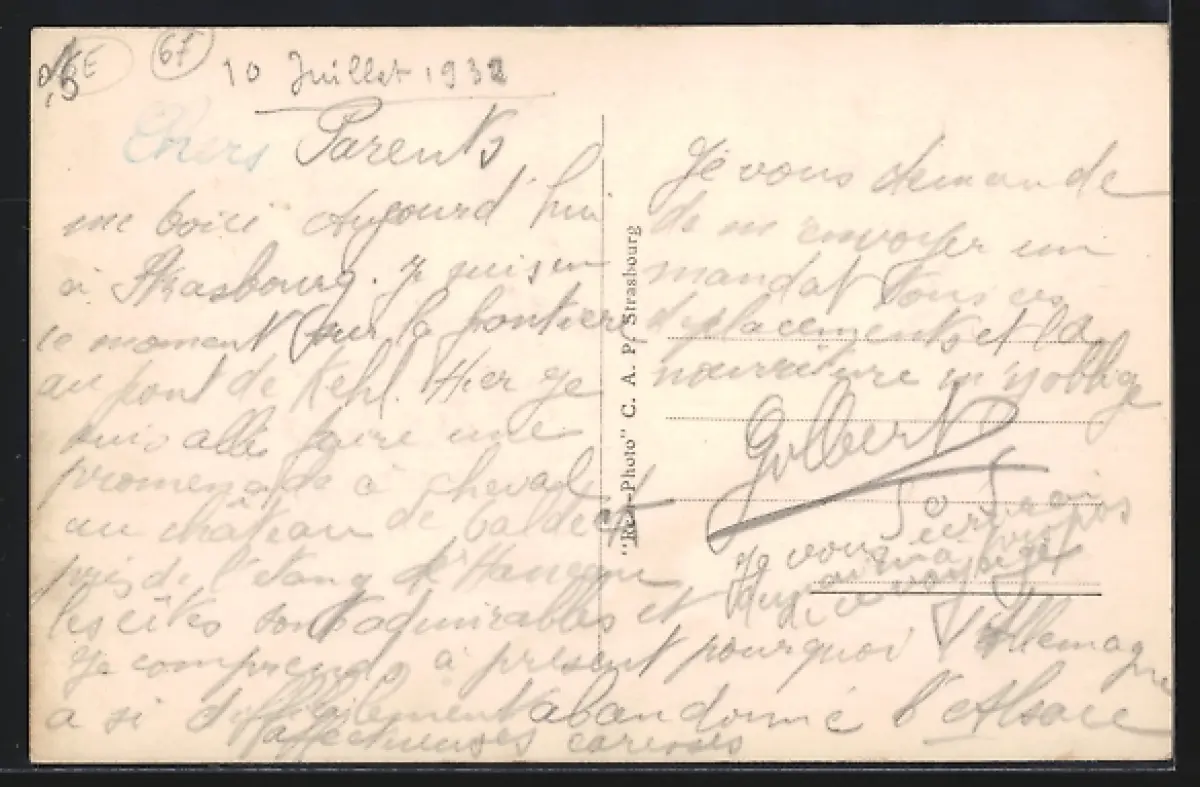 67
10 Juillet 1932
Chers Parents
me voici Aujourd'hui
à Strasbourg. Je suis en
ce moment sur la frontière
au pont de Kehl. Hier je
suis allé faire une
promenade à cheval
au château de
près de l'étang de Hanau
les sites sont admirables et
Je comprends à présent pourquoi l'Allemagne
a si difficilement abandonné l'Alsace
affectueuses caresses
"Real-Photo" C. A. P. Strasbourg
Je vous demande
de m'envoyer un
mandat tous ces
déplacements et la
nourriture m'y oblige
Gilbert
Je vous